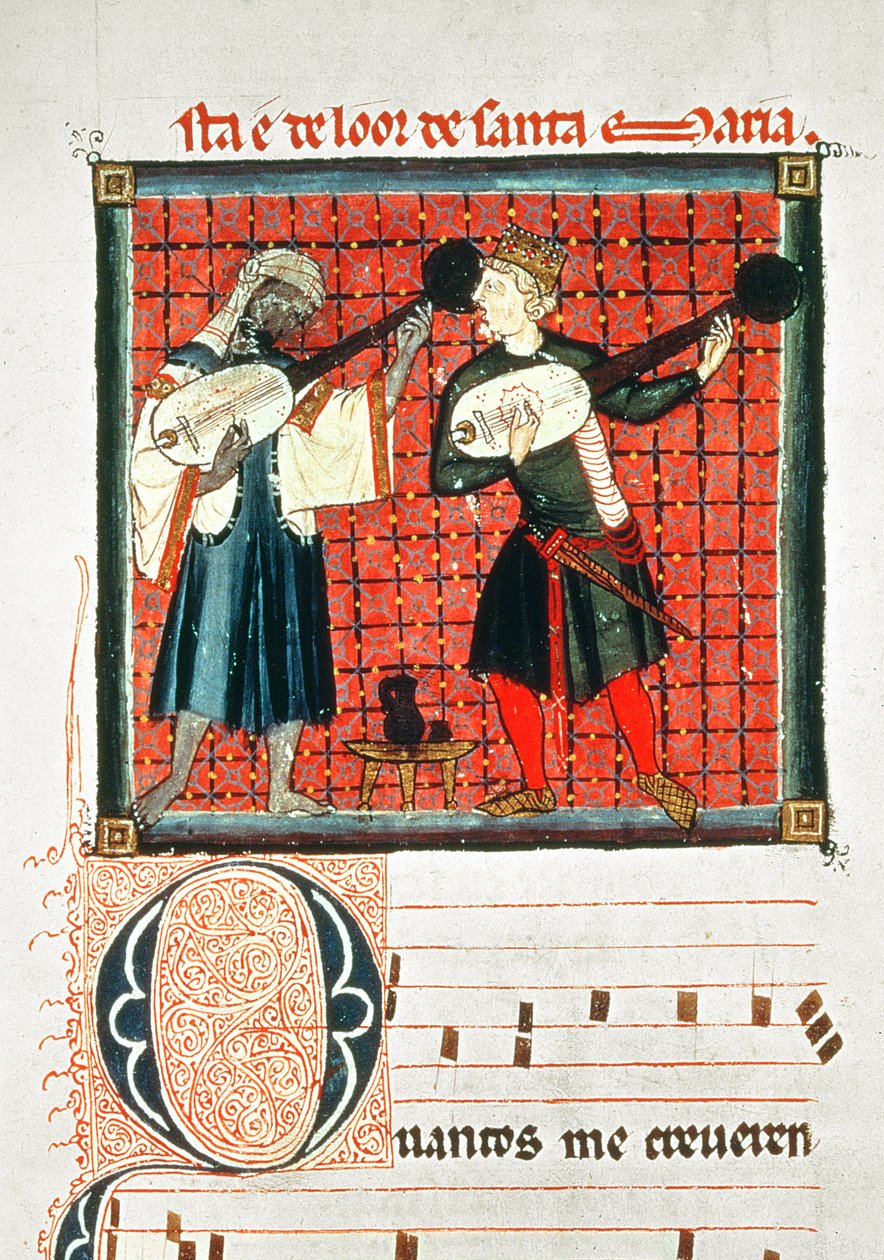 sta é de loor de santa Maria.
Quantos me creveren